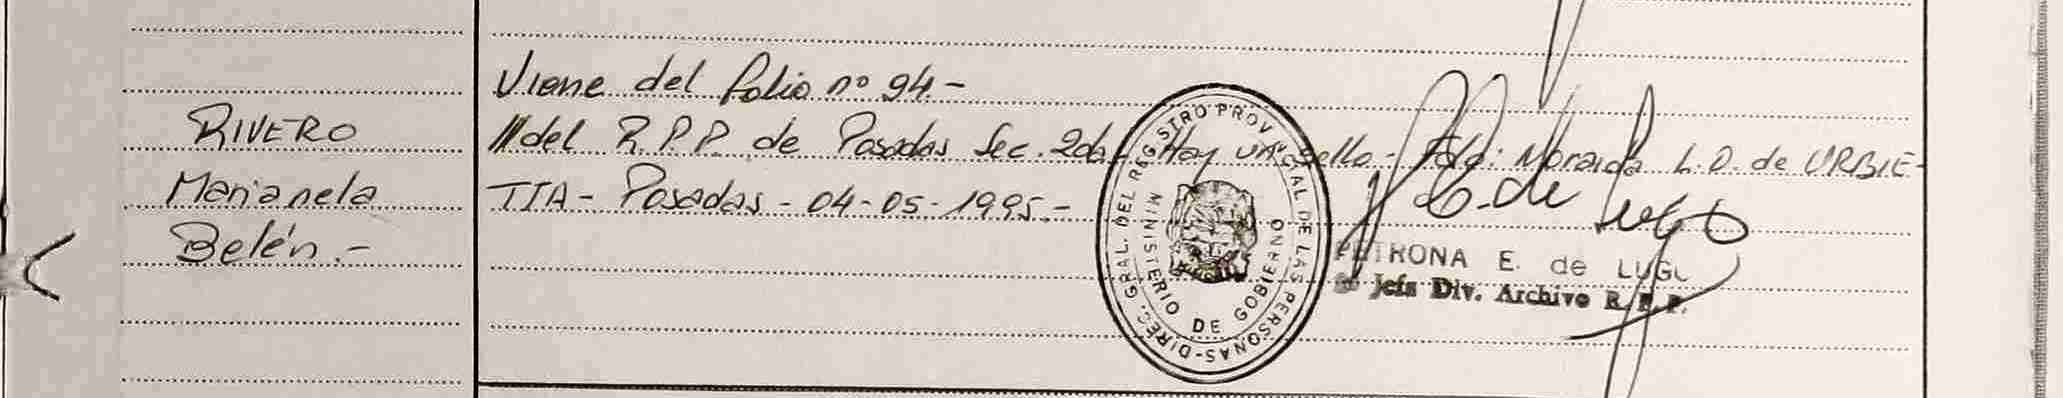 RIVERO
Marianela
Belén.-
Viene del folio nº 94.-
//del R.P.P. de Posadas Sec. 2da.- Hay un sello.- Fdo: Noraida L.D. de URBIE-
TTA- Posadas - 04-05-1995.-
DIREC. GRAL. DEL REGISTRO PROVINCIAL DE LAS PERSONAS-
MINISTERIO DE GOBIERNO
PETRONA E. de LUGO
Jefa Div. Archivo R.P.P.